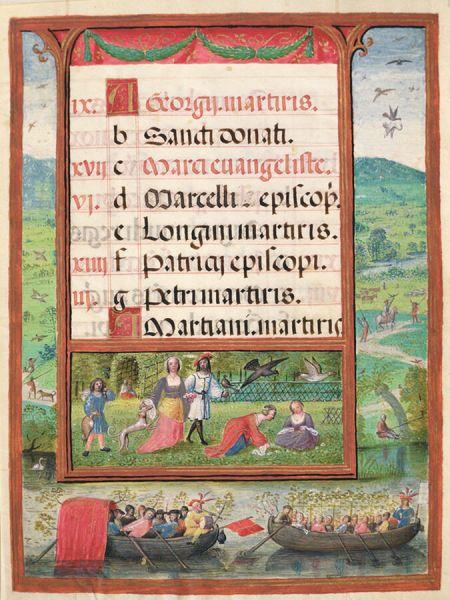 ix. A Georgij.martiris.
b Sancti donati.
xvij c Marci euangeliste.
vj. d Marcelli. episcop̄.
e Longini martiris.
xiiij f Patricij episcopi.
iij. g Petri martiris.
A Martiani.martiris